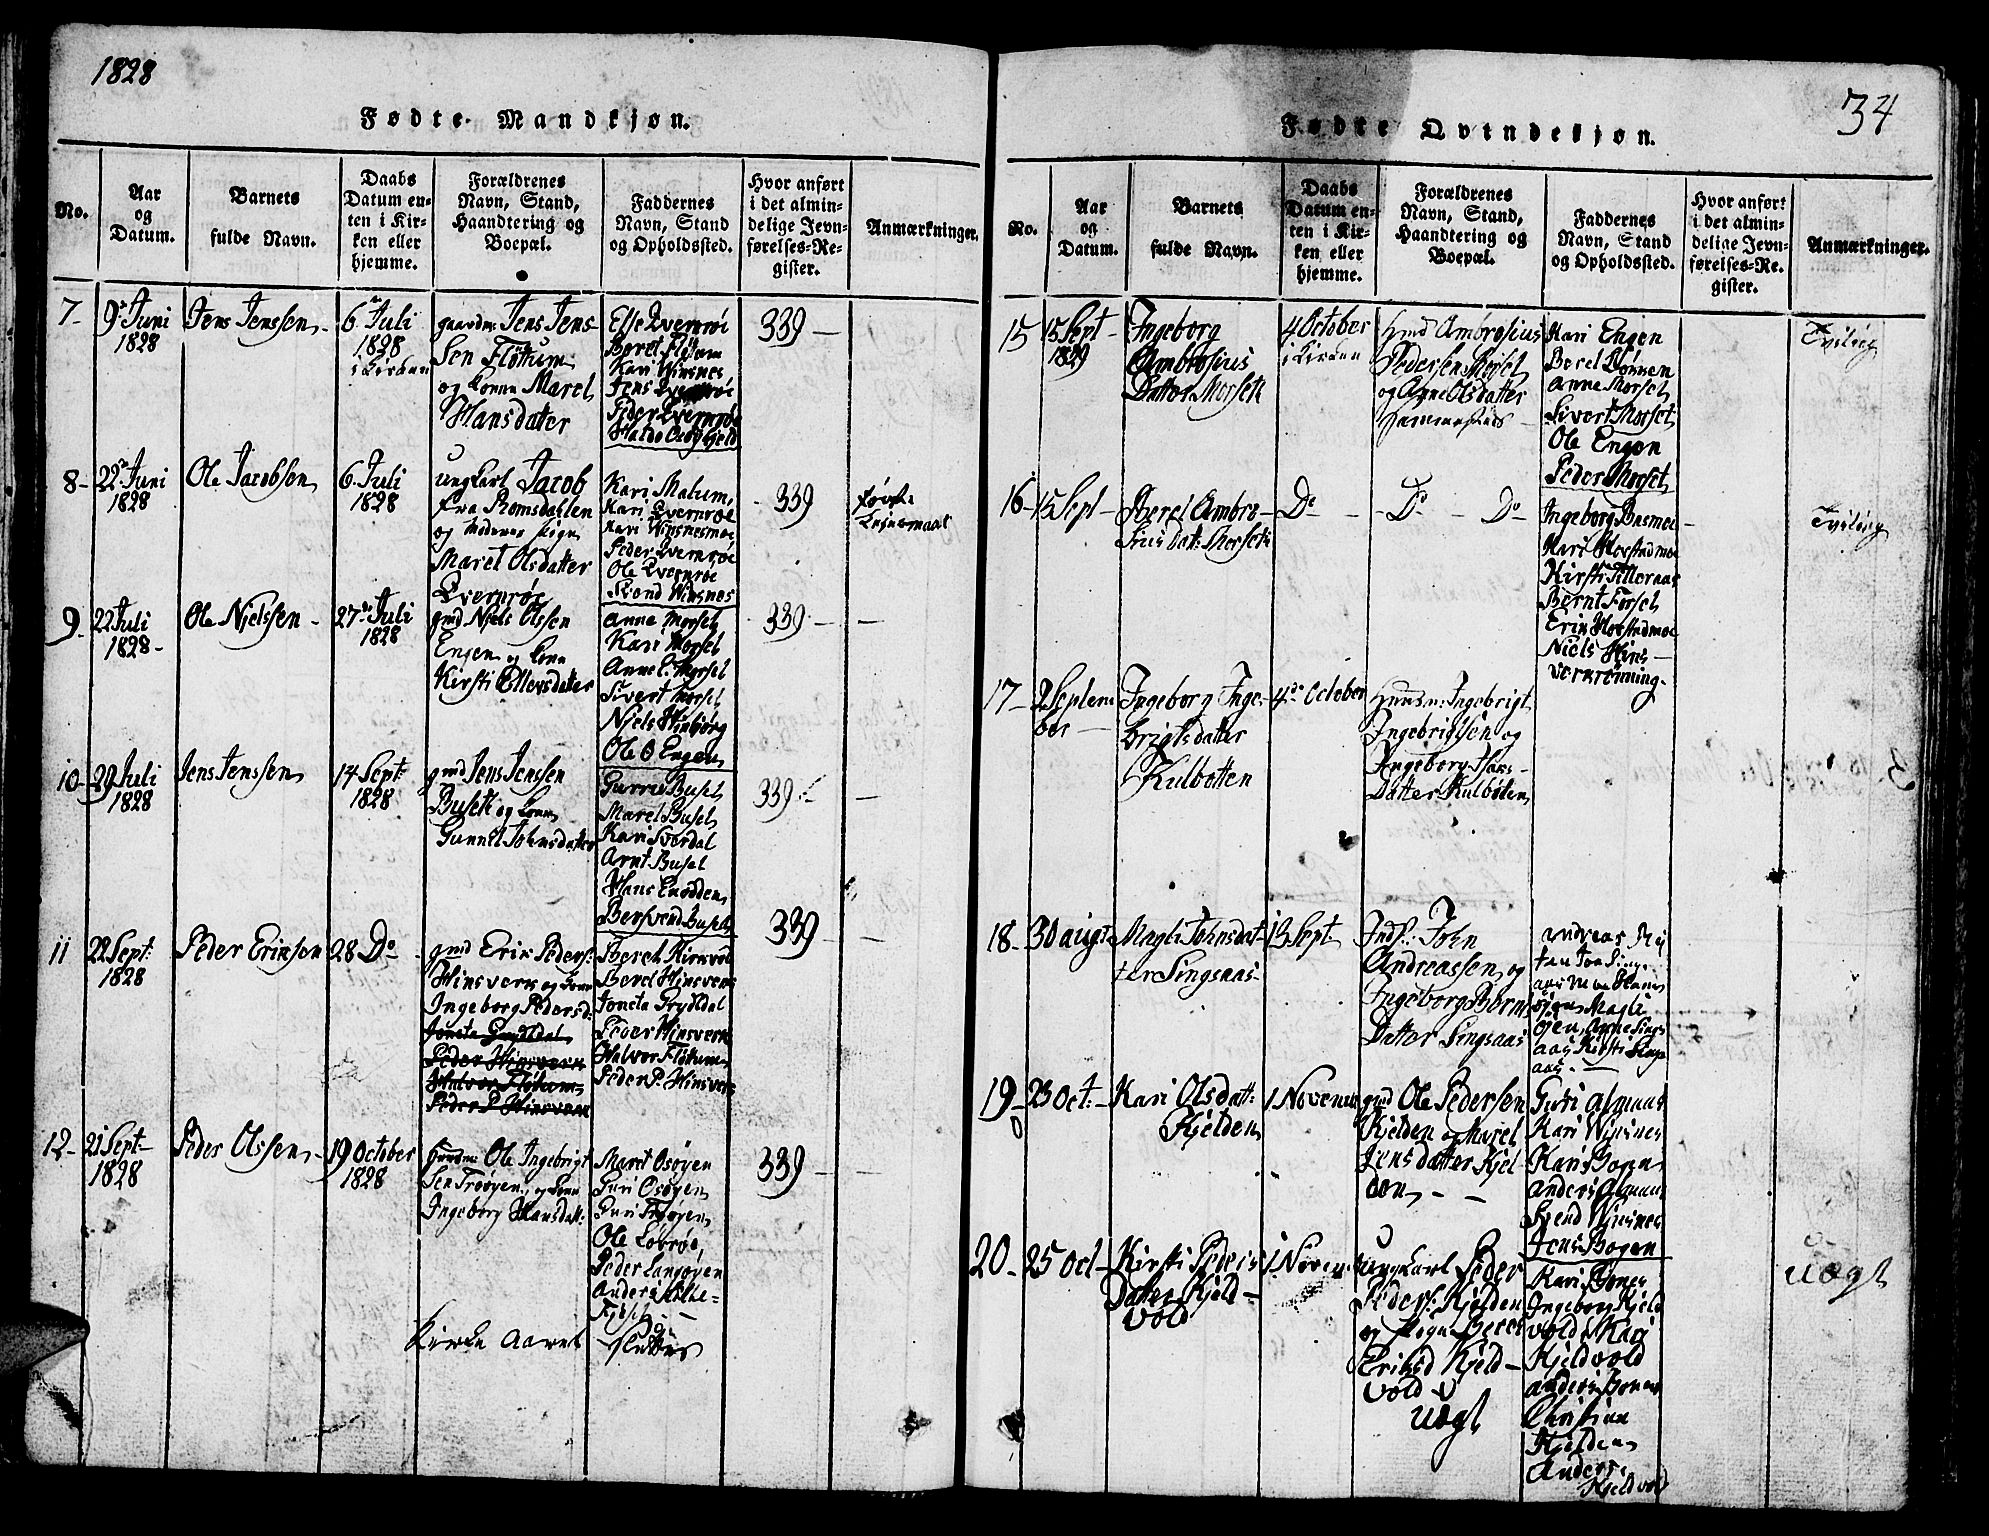 1828
Fødte Mandkjøn.
No.
Aar
og
Datum.
Barnets
fulde Navn.
Daabs
Datum en-
ten i Kir-
ken eller
hjemme.
Forældrenes
Navn, Stand,
Haandtering og
Boepæl.
Faddernes
Navn, Stand
og Opholdssted.
Hvor anført
i det almin-
delige Jevn-
førelses-Re-
gister.
Anmærkninger.
7-
9de Juni
1828
Jens Jenssen
6te Juli
1828
i Kirken
gaardm: Jens Jens-
sen Fløttum
og Kone Maret
Hansdatter
Else Qvernrøe
Beret Fløttum
Kari Winsnes
Jens Qvernrøe
Peder Qvernrøe
339
8-
22de Juni
1828
Ole Jacobsen
6 Juli
1828
ungkarl Jacob
fra Romsdahlen
og Pige
Maret Olsdatter
Qvernrøe
Kari Malum
Kari Qvernrøe
Kari Winsnesmoe
Peder Qvernrøe
Ole Qvernrøe
Svend Winsnes
339
første
Leiermaal
9-
22 Juli
1828-
Ole Nielsen
27de Juli
1828
gmd Niels Olssen
Engen og Kone
Kirsti Ellevsdatter
Anne Morset
Kari Morset
Anne E. Morset
Sivert Morset
Niels
Ole O Engen
339
10-
29 Juli
1828
Jens Jenssen
14 Sept:
1828
gmd Jens Jenssen
Buseth og Kone
Gunnel Johnsdatter
Gurrie Buset
Maret Buset
Kari Svordal
Arnt Buset
Hans Enodden
Bersvend Buset
339
11
22 Sept:
1828
Peder Eriksen
28 Do
gmd Erik Peders:
Hinsvern og Kone
Ingeborg Pedersd:
Joneta Gryddal
Peder Hinsvern
Halvor Fløttum
Peder P Hinsvern
Beret Hinsvern
Beret Hinsvern
Joneta Gryddal
Peder Hinsvern
Halvor Fløttum
Peder P. Hinsvern
339
12-
21 Sept-
1828
Peder Olssen
19 October
1828
huusm: Ole Ingebrigt
sen Trøøyen og Kone
Ingeborg Hansdatt:
Maret Osøyen
Guri Osøyen
Guri Trøøyen
Ole Løvrøe
Peder Langøyen
Anders
339
Kirke Aaret
Sluttes
34
Fødte Qvindekjøn.
No.
Aar
og
Datum.
Barnets
fulde Navn.
Daabs
Datum en-
ten i Kir-
ken eller
hjemme.
Forældrenes
Navn, Stand,
Haandtering og
Boepæl.
Faddernes
Navn, Stand
og Opholdssted.
Hvor anført
i det almin-
delige Jevn-
førelses-Re-
gister.
Anmærkninger.
15
15 Sept
1829
Ingeborg
Ambrosius
Datter Morseth
4 October
i Kirken
Ambrosius
Pedersen Morset
og Anne Olsdatter
sammesteds
Kari Engen
Beret Bønnen
Anne Morset
Sivert Morset
Ole Engen
Peder Morset
Tviling
16-
15 Sept-
Beret Ambro-
sius Dat: Morseth
Do
Do Do
Ingeborg Busmoe
Kari Horstadmoe
Kirsti Tilleraas
Bernt Forset
Erik Horstadmoe
Niels Hins-
vernrønning.
Tviling
17-
2 Septem
ber
Ingeborg Inge-
brigtsdatter
Kulbotten
4de October
Huusm: Ingebrigt
Ingebrigtsen og
Ingeborg
Datter Kulbotten
18-
30 augst
Magli Johnsdat-
ter Singsaas
13 Sept
Inds: John
Andreassen og
Ingeborg Børns
Datter Singsaas
Andreas
Magli
Anne Sings
aas Kirsti Sings
aas.
19-
23 Oct:-
Kari Olsdatt:
Kjelden
1 Novemb
gmd Ole Pedersen
Kjelden og Maret
Jensdatter Kjel
den
Guri Almaas
Kari Winsnes
Kari Bogen
Anders Almaas
Svend Winsnes
Jens Bogen
20-
25 Oct-
Kirsti Peders
Datter Kjeld-
vold
1 Novem
Ungkarl Peder
Peders: Kjelden
og Pige Beret
Eriksd Kjeld-
vold
uægt
Kari Bones
Ingeborg Kjeld
vold Kari
Kjeldvold
Anders Bones
Christian
Kjelden
Anders
Kjeldvold
uægt